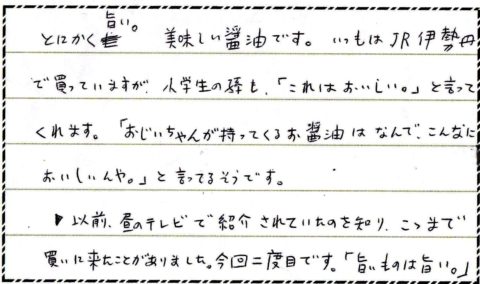 とにかく旨い。 美味しい醤油です。 いつもはJR伊勢丹
で買っていますが、小学生の孫も、「これはおいしい。」と言って
くれます。「おじいちゃんが持ってくるお醤油はなんで、こんなに
おいしいんや。」と言ってるそうです。
以前、昼のテレビで紹介されていたのを知り、こっまで
買いに来たことがありました。今回二度目です。「旨いものは旨い。」